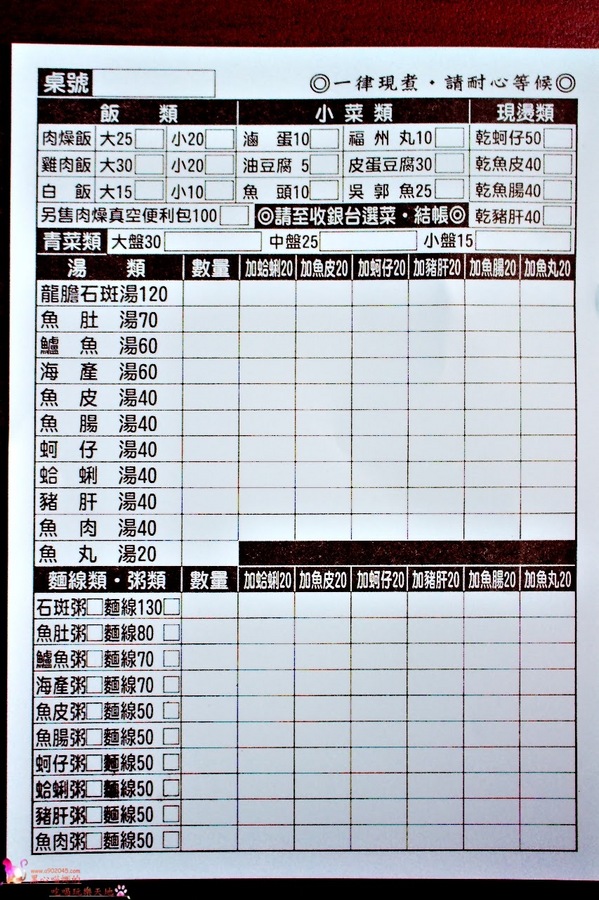 桌號 ◎一律現煮・請耐心等候◎
飯 類 小 菜 類 現燙類
肉燥飯 大25 小20 滷 蛋10 福 州 丸10 乾蚵仔50
雞肉飯 大30 小20 油豆腐 5 皮蛋豆腐30 乾魚皮40
白 飯 大15 小10 魚 頭10 吳 郭 魚25 乾魚腸40
另售肉燥真空便利包100 ◎請至收銀台選菜・結帳◎ 乾豬肝40
青菜類 大盤30 中盤25 小盤15
湯 類 數量 加蛤蜊20 加魚皮20 加蚵仔20 加豬肝20 加魚腸20 加魚丸20
龍膽石斑湯120
魚 肚 湯70
鱸 魚 湯60
海 產 湯60
魚 皮 湯40
魚 腸 湯40
蚵 仔 湯40
蛤 蜊 湯40
豬 肝 湯40
魚 肉 湯40
魚 丸 湯20
麵線類・粥類 數量 加蛤蜊20 加魚皮20 加蚵仔20 加豬肝20 加魚腸20 加魚丸20
石斑粥 麵線130
魚肚粥 麵線80
鱸魚粥 麵線70
海產粥 麵線70
魚皮粥 麵線50
魚腸粥 麵線50
蚵仔粥 麵線50
蛤蜊粥 麵線50
豬肝粥 麵線50
魚肉粥 麵線50
吃喝玩樂天地